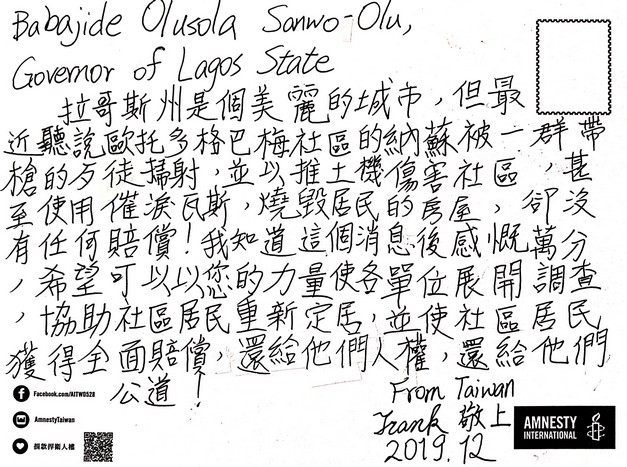 Babajide Olusola Sanwo-Olu,
Governor of Lagos State
拉哥斯州是個美麗的城市，但最
近聽說歐托多格巴梅社區的納蘇被一群帶
槍的歹徒掃射，並以推土機傷害社區，甚
至使用催淚瓦斯，燒毀居民的房屋，卻沒
有任何賠償！我知道這個消息後感慨萬分
，希望可以以您的力量使各單位展開調查
，協助社區居民重新定居，並使社區居民
獲得全面賠償，還給他們人權，還給他們
公道！
From Taiwan
Frank 敬上
2019.12
Facebook.com/AITW0528
AmnestyTaiwan
捐款捍衛人權
AMNESTY
INTERNATIONAL